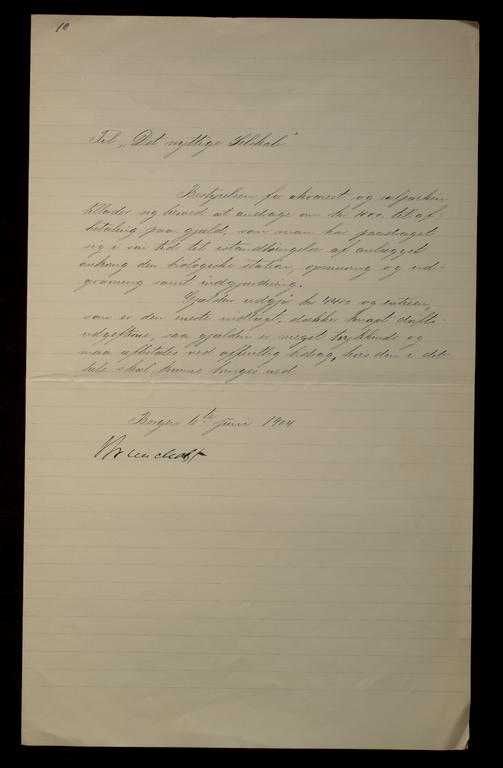 10
Til „Det nyttige Selskab"
Bestyrelsen for akvariet og sælparken
tillader sig herved at andrage om kr 400. til af-
betaling paa gjæld, som man har paadraget
sig i vår tid til istandbringelse af anlægget
omkring den biologiske station, opmuring og ud-
gravning samt indgjærdning.
Gjælden udgjør kr 4400 og entreen,
som er den eneste indtægt, dækker knapt drifts-
udgifterne, saa gjælden er meget trykkende og
maa afbetales ved offentlig bidrag, hvis den i det
hele skal kunne bringes ned.
Bergen 6te juni 1904